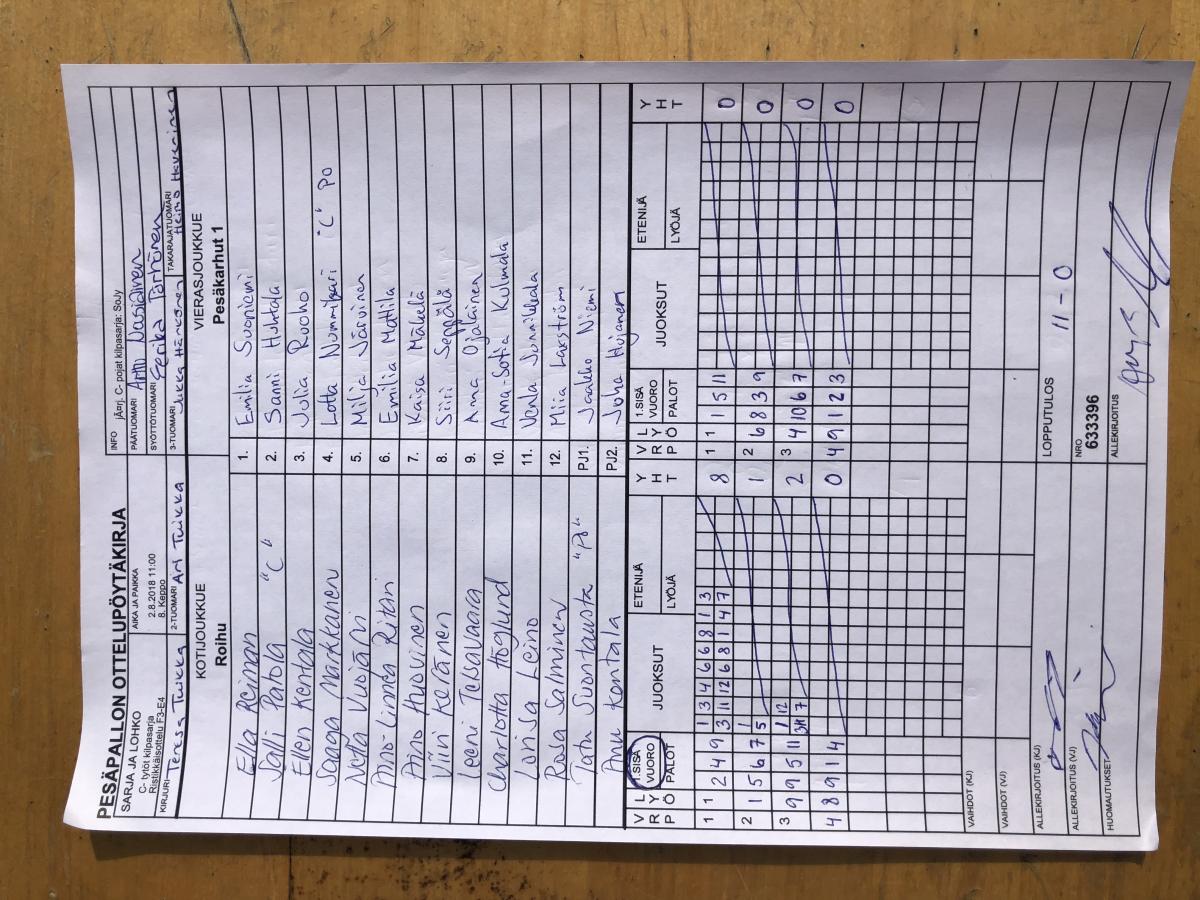 PESÄPALLON OTTELUPÖYTÄKIRJA
SARJA JA LOHKO
C- tytöt kilpasarja
Ristiikkäisottelu F3-E4
AIKA JA PAIKKA
2.8.2018 11:00
8. Keppo
INFO jÄ¤rj. C- pojat kilpasarja: SoJy
PÄÄTUOMARI
SYÖTTÖTUOMARI Eerika Torhonen
KIRJURI Teresa Tuikka
2-TUOMARI Ari Tuikka
3-TUOMARI Jukka Härkönen
TAKARAJATUOMARI Heimo
KOTIJOUKKUE
Roihu
VIERASJOUKKUE
Pesäkarhut 1
Ella Reiman 1. Emilia Suoniemi
Salli Patola "C" 2. Sanni Huhtala
Ellen Kentala 3. Julia Ruoho
Saaga Markkanen 4. Lotta "C" PO
Netta Vuojärvi 5. Milja Järvinen
Aino-Linnea Ritari 6. Emilia Mattila
Aino Huovinen 7. Kaisa Mäkelä
Viivi Ketänen 8. Siiri Seppälä
Leeni Teckavaara 9. Anna Ojalainen
Charlotta Höglund 10. Anna-Sofia Kulmala
Lorisa Leino 11. Venla Junnikkala
Roosa Salminen 12. Miia Lakström
Tatu Suontausta "PO" PJ1. Jaakko Niemi
Anu Kontala PJ2. Juha Hujanen
V R P L Y Ö 1.SISÄ VUORO PALOT JUOKSUT ETENIJÄ LYÖJÄ Y H T V R P L Y Ö 1.SISÄ VUORO PALOT JUOKSUT ETENIJÄ LYÖJÄ Y H T
1 1 2 4 9 1 3 4 6 6 8 1 3 8 1 1 1 5 11 0
3 11 12 6 8 1 4 7
2 1 5 6 7 1 1 2 6 8 3 9 0
5
3 9 9 5 11 1 12 2 3 4 10 6 7 0
3 11 7
4 8 9 1 4 0 4 9 1 2 3 0
VAIHDOT (KJ)
VAIHDOT (VJ)
ALLEKIRJOITUS (KJ)
LOPPUTULOS 11 - 0
ALLEKIRJOITUS (VJ)
NRO
633396
HUOMAUTUKSET
ALLEKIRJOITUS